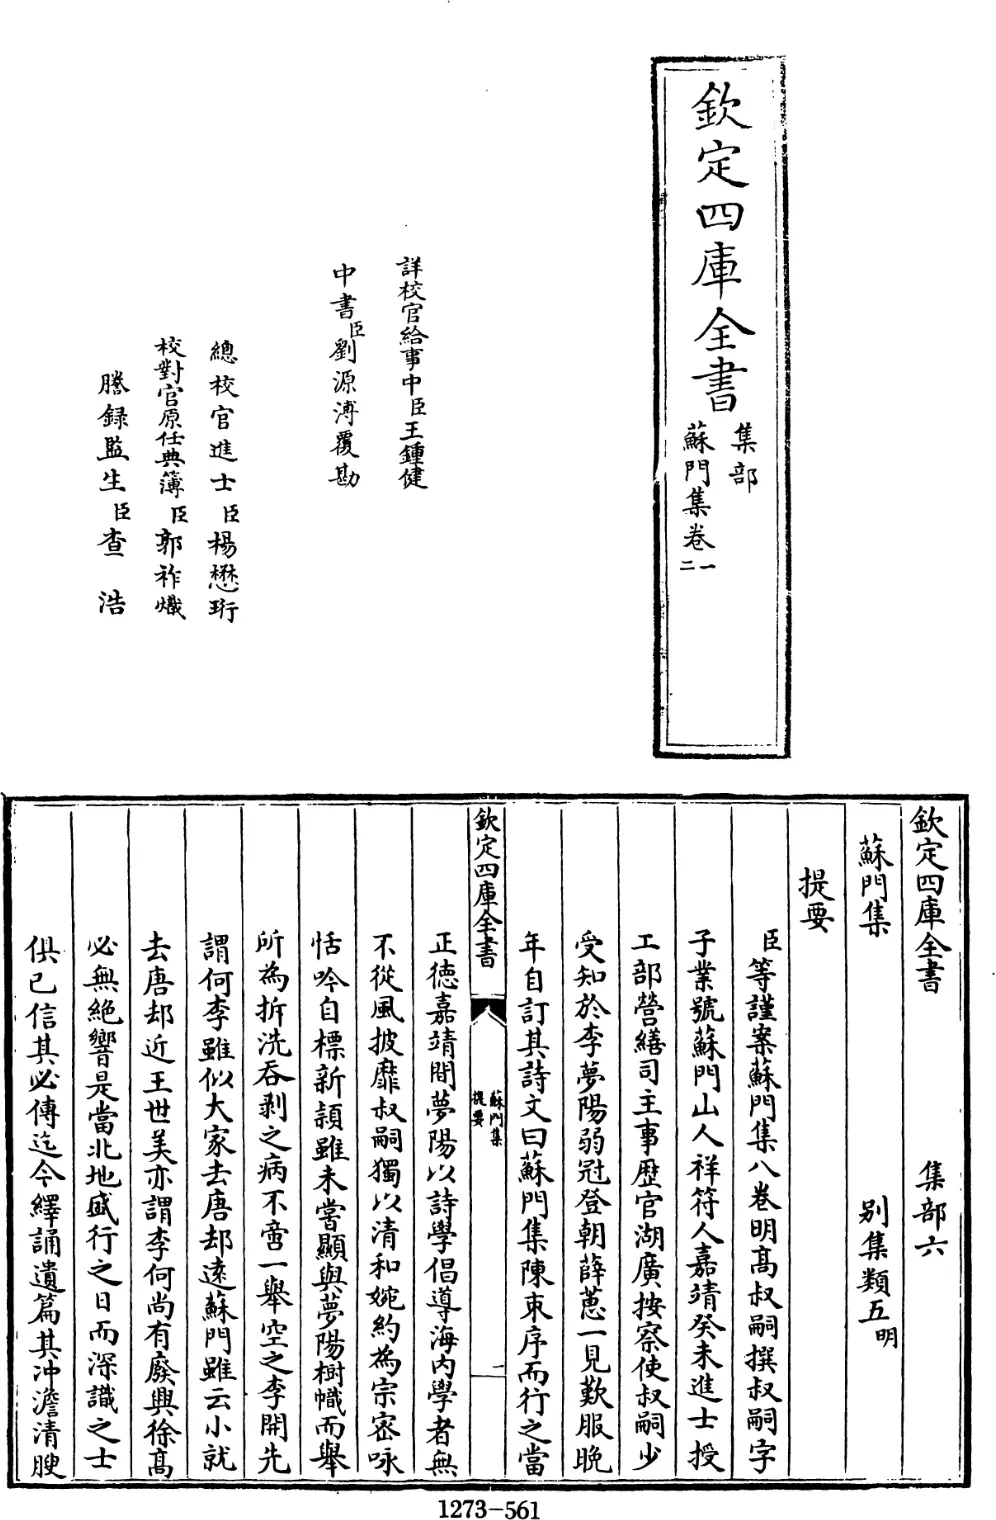 欽定四庫全書
集部
蘇門集卷一
二
詳校官給事中臣王鍾健
中書臣劉源溥覆勘
總校官進士臣楊懋珩
校對官原任典簿臣郭祚熾
謄録監生臣查浩
欽定四庫全書 集部六
蘇門集 别集類五明
提要
臣等謹案蘇門集八卷明髙叔嗣撰叔嗣字
子業號蘇門山人祥符人嘉靖癸未進士授
工部營繕司主事歴官湖廣按察使叔嗣少
受知於李夢陽弱冠登朝薛蕙一見歎服晩
年自訂其詩文曰蘇門集陳束序而行之當
欽定四庫全書
蘇門集
提要
一
正徳嘉靖間夢陽以詩學倡導海内學者無
不從風披靡叔嗣獨以清和婉約為宗宻咏
恬吟自標新穎雖未嘗顯與夢陽樹幟而舉
所為折洗吞剥之病不啻一舉空之李開先
謂何李雖似大家去唐却逺蘇門雖云小就
去唐却近王世美亦謂李何尚有廢興徐髙
必無絶響是當北地盛行之日而深識之士
俱已信其必傳迄今繹誦遺篇其冲澹清腴
1273-561